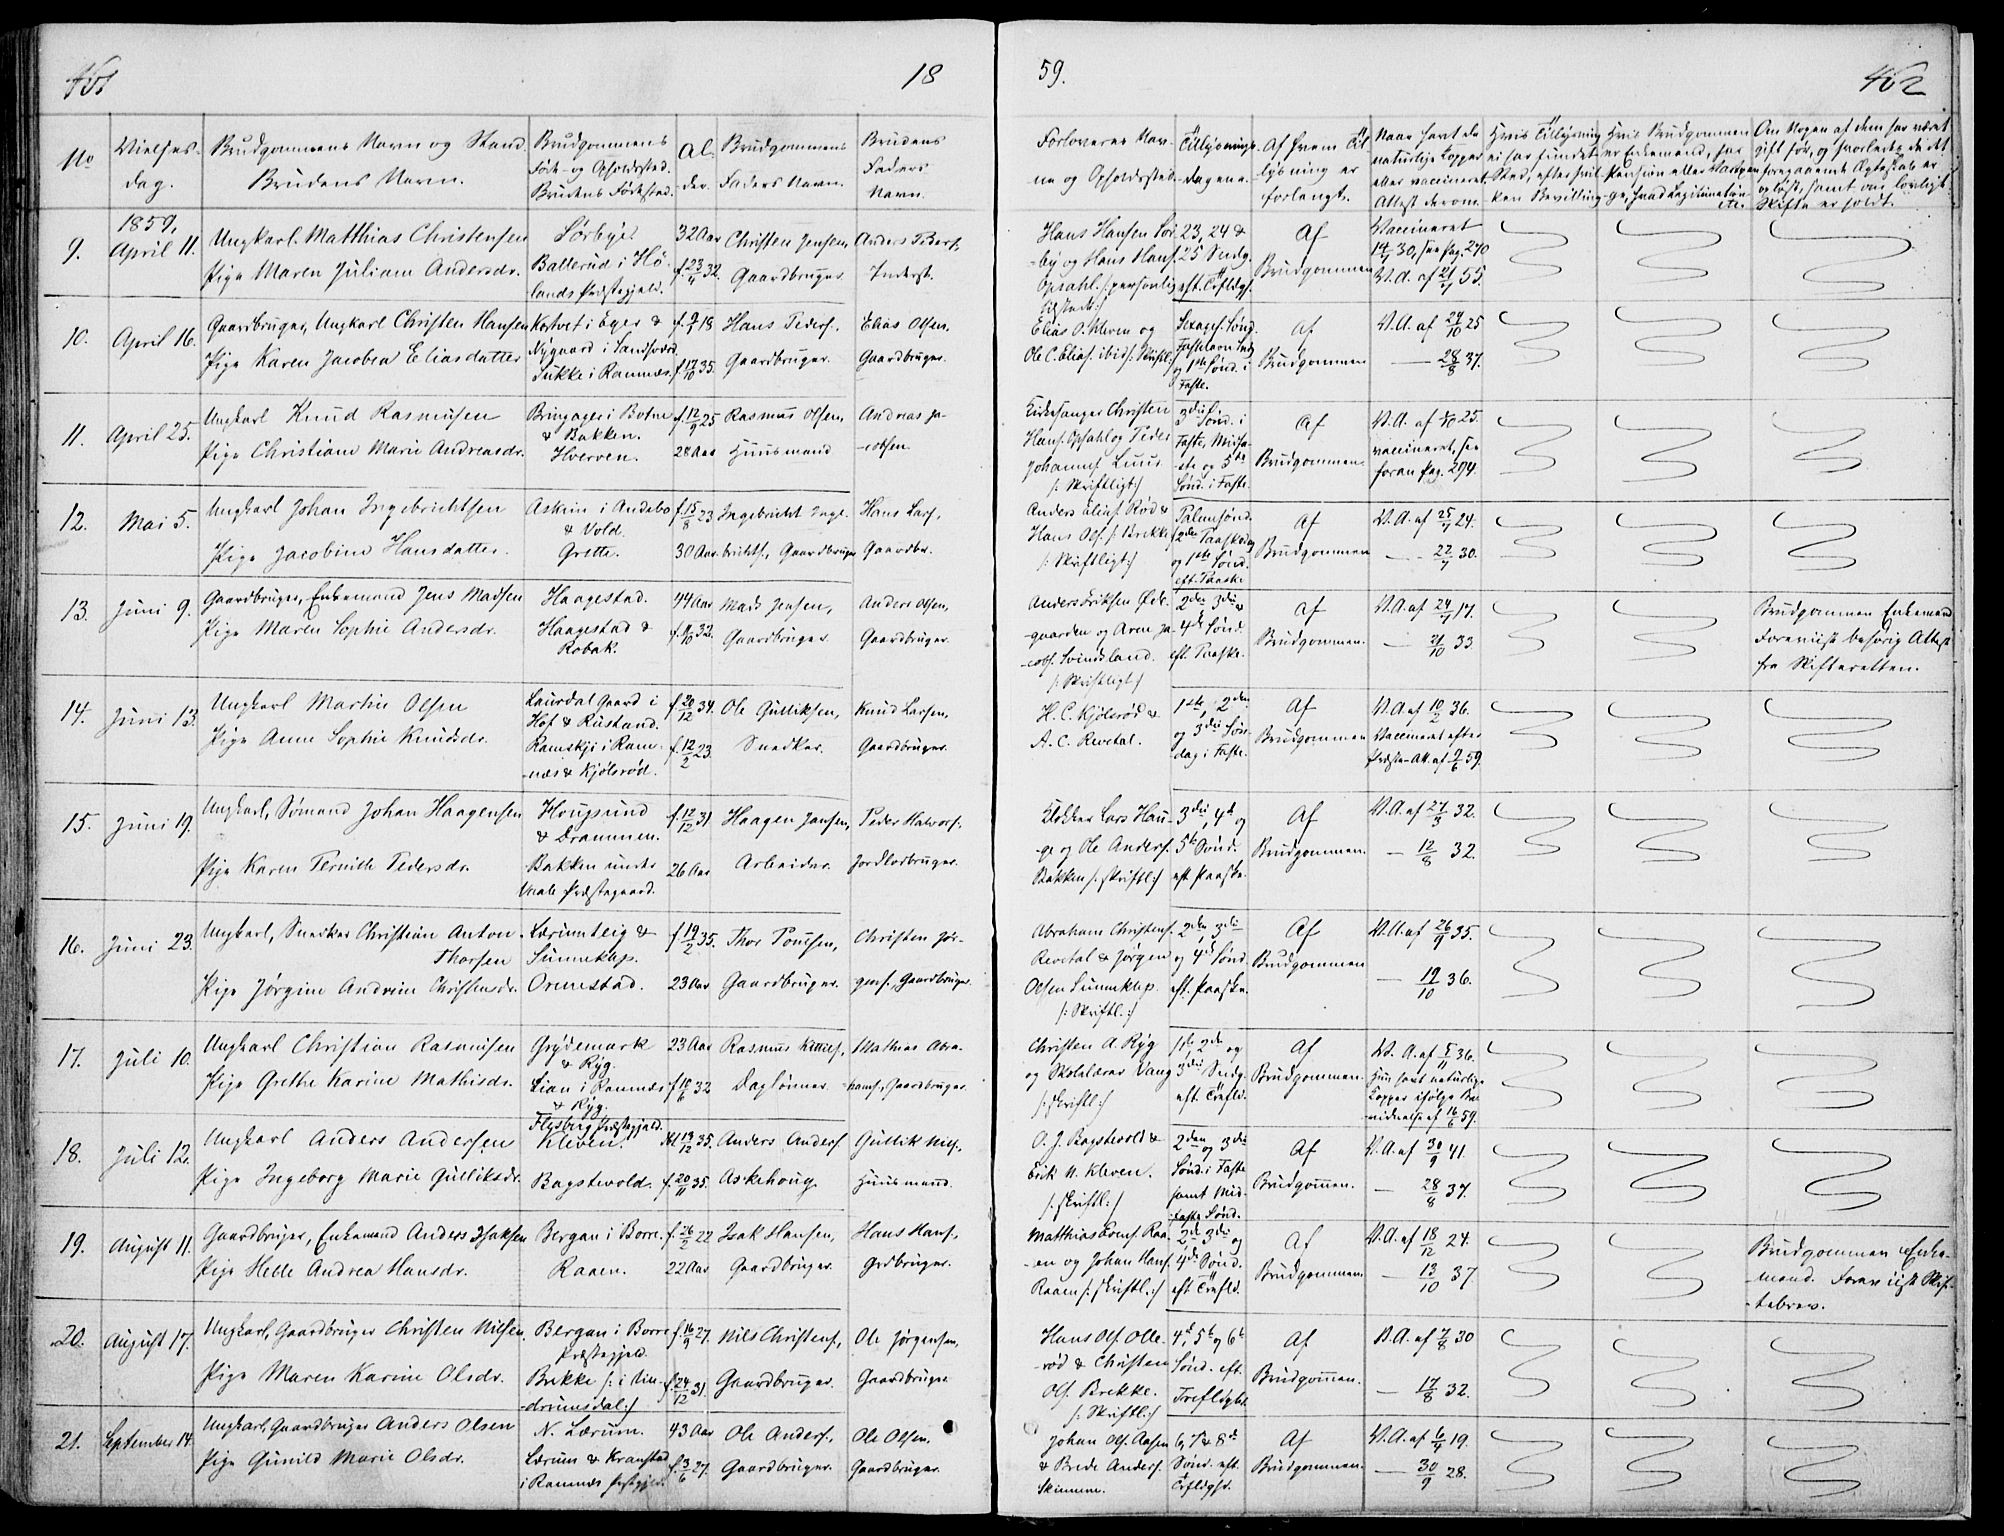 461
18
59.
462
No
Vielses-
dag.
Brudgommens Navn og Stand.
Brudens Navn.
Brudgommens
Føde- og Opholdssted.
Brudens Fødested.
Al-
der.
Brudgommens
Faders Navn.
Brudens
Faders
Navn.
Forlovernes Nav-
ne og Opholdssted.
Tillysnings-
dagene.
Af hvem Til-
lysning er
forlangt.
Naar havt de
naturlige Kopper
eller vaccineret.
Attest derom.
Hvis Tillysning
ei har fundet
Sted, efter hvil-
ken Bevilling
Hvis Brudgommen
er Enkemand, har
Pension eller
Om Nogen af dem har været
gift før, og hvorledes da det
foregaaende Ægteskab er
opløst, samt om lovligt
Skifte er holdt.
1859,
9. April 11.
Ungkarl. Matthias Christensen
Pige Maren Juliane Andersdr.
Sørbye.
Ballerud i Hø-
lands Præstegjeld.
32 Aar
f. 23/4 32.
Christen Jensen,
Gaardbruger
Anders Peders.,
Inderst.
Hans Hansen Sør-
by og Hans Hans.
Opsahl. /: personlig
Tilstede :/
23, 24 &
25 Søndg.
eft. Trefldgh.
Af
Brudgommen
Vaccineret
14/7 30, see pag. 270
V. A. af 21/7 55.
10. April 16.
Gaardbruger, Ungkarl Christen Hansen
Pige Karen Jacobea Eliasdatter
Kortvet i Eger &
Nygaard i Sandsværd.
Sukke i Ramnæs.
f. 9/7 18
f. 17/10 35.
Hans Peders.,
Gaardbruger.
Elias Olsen.
Gaardbruger.
Elias O. Kleven og
Ole C. Elias. ibid. /: Skriftl. :/
Sexages. Sønd.
Fastelavn Sndg
og 1ste Sønd. i
Faste.
Af
Brudgommen
V. A. af 24/10 25
— 28/8 37.
11. April 25.
Ungkarl Knud Rasmusen
Pige Christiane Marie Andreasdr.
Bringager i Botne
& Bakken.
Hverven.
f. 12/9 25
28 Aar
Rasmus Olsen,
Huusmand
Andreas Ja-
cobsen.
Kirkesanger Christen
Hans. Opsahl og Peder
Johannes. Luus
/: Skriftligt :/
3die Sønd. i
Faste, Midfa-
ste og 5te
Sønd. i Faste.
Af
Brudgommen.
V. A. af 5/10 25.
vaccineret, see
foran pag. 294.
12. Mai 5.
Ungkarl Johan Ingebrichtsen
Pige Jacobine Hansdatter.
Askim i Andebo
& Vold.
Grette.
f. 15/8 23.
30 Aar.
Ingebricht Inge-
brichts., Gaardbruger
Hans Lars.,
Gaardbr.
Anders Elias. Rød &
Hans Ols. /: Brekke
/: Skriftligt :/
Palmesønd.
2den Paaskedag
og 1ste Sønd.
eft. Paaske
Af
Brudgommen
V. A. af 25/7 24.
— 22/7 30.
13. Juni 9.
Gaardbruger, Enkemand Jens Madsen
Pige Maren Sophie Andersdr.
Haagestad.
Haagestad &
Robak.
44 Aar
f. 11/10 32.
Mads Jensen,
Gaardbruger
Anders Olsen,
Gaardbruger.
Anders Eriksen Øde-
gaarden og Arne Ja-
cobs. Svindsland.
/: Skriftligt :/
2den 3die &
4de Sønd.
eft. Paaske.
Af
Brudgommen.
V. A. af 24/7 17.
— 21/10 33.
Brudgommen Enkemand
Foreviist behørig Attest
fra Skifteretten.
14. Juni 13.
Ungkarl Martin Olsen
Pige Anne Sophie Knudsdr.
Laurdal Gaard i
Hof & Rustand.
Ramskji i Ram-
næs & Kjølsrød.
f. 20/12 34.
f. 12/2 23
Ole Gulliksen,
Snedker.
Knud Larsen,
Gaardbruger.
H. C. Kjølsrød &
A. C. Revetal.
1ste, 2den
og 3die Søn-
dag i Faste.
Af
Brudgommen
V. A af 10/2 36.
Vaccineret efter
Præste-Att. af 9/6 59.
15. Juni 19.
Ungkarl, Sømand Johan Haagensen
Pige Karen Pernille Pedersdr.
Hougsund
& Drammen.
Bakken under
Vaale Præstegaard.
f. 12/12 31
26 Aar
Haagen Jansen,
Arbeider.
Peder Halvors.,
Jordlodbruger.
Klokker Lars Hau-
ge og Ole Anders.
Bakken /: skriftl. :/
3die, 4de og
5te Sønd.
eft Paaske.
Af
Brudgommen.
V. A. af 27/3 32.
— 12/8 32.
16. Juni 23.
Ungkarl, Snedker Christian Anton
Thorsen
Pige Jørgine Andrine Christensdr.
Lerumteig &
Sunneklep.
Ormestad.
f 19/2 35.
23 Aar
Thor Poulsen,
Gaardbruger.
Christen Jør-
gens., Gaardbruger
Abraham Christens.
Revetal & Jørgen
Olsen Sunneklep.
/: Skriftl. :/
2den, 3die
og 4de Sønd.
eft. Paaske.
Af
Brudgommen
V. A. af 26/9 35.
— 19/10 36.
17. Juli 10.
Ungkarl Christian Rasmusen
Pige Grethe Karine Mathisdr.
Grydemark
& Ryg.
Lian i Ramnæs
& Ryg.
23 Aar
f 15/6 32
Rasmus Kittils.,
Daglønner
Mathias Abra-
hams., Gaardbruger.
Christen A. Ryg
og Skolelærer Vang
/: skriftl :/
1ste, 2de og
3die Sndg.
eft. Trefld.
Af
Brudgommen.
V. A. af 5/11 36.
Hun havt naturlige
Kopper ifølge Be-
vidnelse af 16/6 59.
18. Juli 12.
Ungkarl Anders Andersen
Pige Ingeborg Marie Gulliksdr.
Flesberg Præstegjeld.
Kleven.
Bagstevold.
13/12 35.
f. 20/11 35.
Anders Anders
Askehoug.
Gullik Nils.,
Huusmand.
O. J. Bagstevold &
Erik N. Kleven.
/: skriftl: /
2den og 3die
Sønd. i Faste
samt Mid-
faste Sønd.
Af
Brudgommen.
V. A. af 30/9 41.
— 28/8 37.
19. August 11.
Gaardbruger, Enkemand Anders Isaksen
Pige Helle Andrea Hansdr.
Bergan i Borre.
Raaen.
f. 26/2 22
22 Aar
Isak Hansen,
Gaardbruger.
Hans Hans.,
Grdbruger.
Matthias Evens. Raa-
en og Johan Hans.
Raaen /: skriftl. :/
2de 3die og
4de Sønd.
eft Trefld.
Af
Brudgommen
V. A. af 18/12 24.
— 13/10 37.
Brudgommen Enke-
mand. Foreviist Skif-
tebrev.
20. August 17.
Ungkarl, Gaardbruger Christen Nilsen.
Pige Maren Karine Olsdr.
Bergan i Borre
Præstegjeld.
Brekke /: i Vin-
drumsdal :/
f. 16/9 27.
f. 24/12 31.
Nils Christens.,
Gaardbruger.
Ole Jørgensen,
Gaardbruger
Hans Ols. Olle-
rød & Christen
Ols. Brekke.
/: Skriftl :/
4de, 5te og 6te
Sønd. eft.
Trefldght.
Af
Brudgommen.
V. A. af 7/8 30
— 17/8 32.
21. September 14.
Ungkarl, Gaardbruger Anders Olsen
Pige Gunild Marie Olsdr.
N. Lærum.
Lærum & Kranstad
i Ramnæs Prstgjeld.
43 Aar
f. 3/6 27.
Ole Anders.,
Gaardbruger.
Ole Olsen.
Gaardbruger.
Johan Ols. Aasen
& Brede Anders.
Skimmen.
6, 7 & 8de
Sønd. eft.
Trefldght.
Af
Brudgommen.
V. A. af 6/7 19.
— 30/9 28.